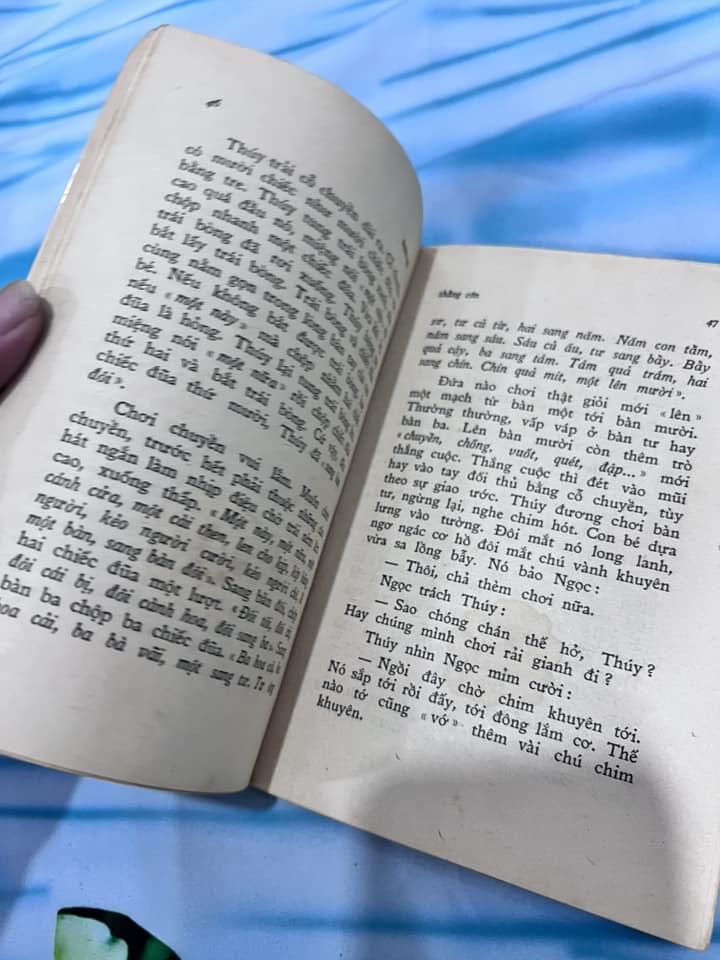 46
Thúy trải cỗ chuyền đôi ra. Cỗ
có mười chiếc như mười chiếc
bằng tre. Thúy tung trái bóng
cao quá đầu nó, miệng nói
chộp nhanh một chiếc đũa.
trái bóng đã rơi xuống, Thúy
bắt lấy trái bóng. Trái bóng và
cùng nằm gọn trong lòng
bé. Nếu không bắt được trái
nếu « một này » mà chộp
đũa là hỏng. Thúy lại tung trái
miệng nói « một nữa » rồi chộp
thứ hai và bắt trái bóng. Cứ
chiếc đũa thứ mười, Thúy
đôi ».
Chơi chuyền vui lắm. Muốn
chuyền, trước hết phải thuộc những
hát ngắn làm nhịp điệu cho trái
cao, xuống thấp. « Một này, một
cánh cửa, một cái then, len cho
người, kéo người cười, kéo người
một bàn, sang bàn đôi ». Sang bàn đôi,
hai chiếc đũa một lượt. « Đôi tôi, đôi
đôi cái bị, đôi cánh hoa, đôi sang ba »
bàn ba chộp ba chiếc đũa. « Ba hoa cà,
hoa cải, ba bà vãi, một sang tư. Tư
thằng côn
47
sư, tư củ từ, hai sang năm. Năm con tằm,
năm sang sáu. Sáu củ ấu, tư sang bảy. Bảy
quả cậy, ba sang tám. Tám quả trám, hai
sang chín. Chín quả mít, một lên mười ».
Đứa nào chơi thật giỏi mới « lên »
một mạch từ bàn một tới bàn mười.
Thường thường, vấp váp ở bàn tư hay
bàn ba. Lên bàn mười còn thêm trò
« chuyền, chống, vuốt, quét, đập... » mới
thắng cuộc. Thắng cuộc thì đét vào mũi
hay vào tay đối thủ bằng cỗ chuyền, tùy
theo sự giao trước. Thúy đương chơi bàn
tư, ngừng lại, nghe chim hót. Con bé dựa
lưng vào tường. Đôi mắt nó long lanh,
ngơ ngác cơ hồ đôi mắt chú vành khuyên
vừa sa lồng bẫy. Nó bảo Ngọc :
— Thôi, chả thèm chơi nữa.
Ngọc trách Thúy :
— Sao chóng chán thế hở, Thúy ?
Hay chúng mình chơi rải gianh đi ?
Thúy nhìn Ngọc mỉm cười :
— Ngồi đây chờ chim khuyên tới.
Nó sắp tới rồi đấy, tới đông lắm cơ. Thế
nào tớ cũng « vớ » thêm vài chú chim
khuyên.